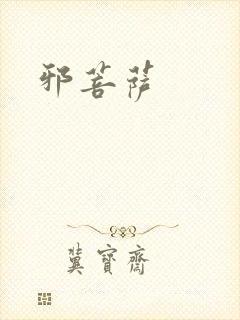 邪菩萨
冀寶齋